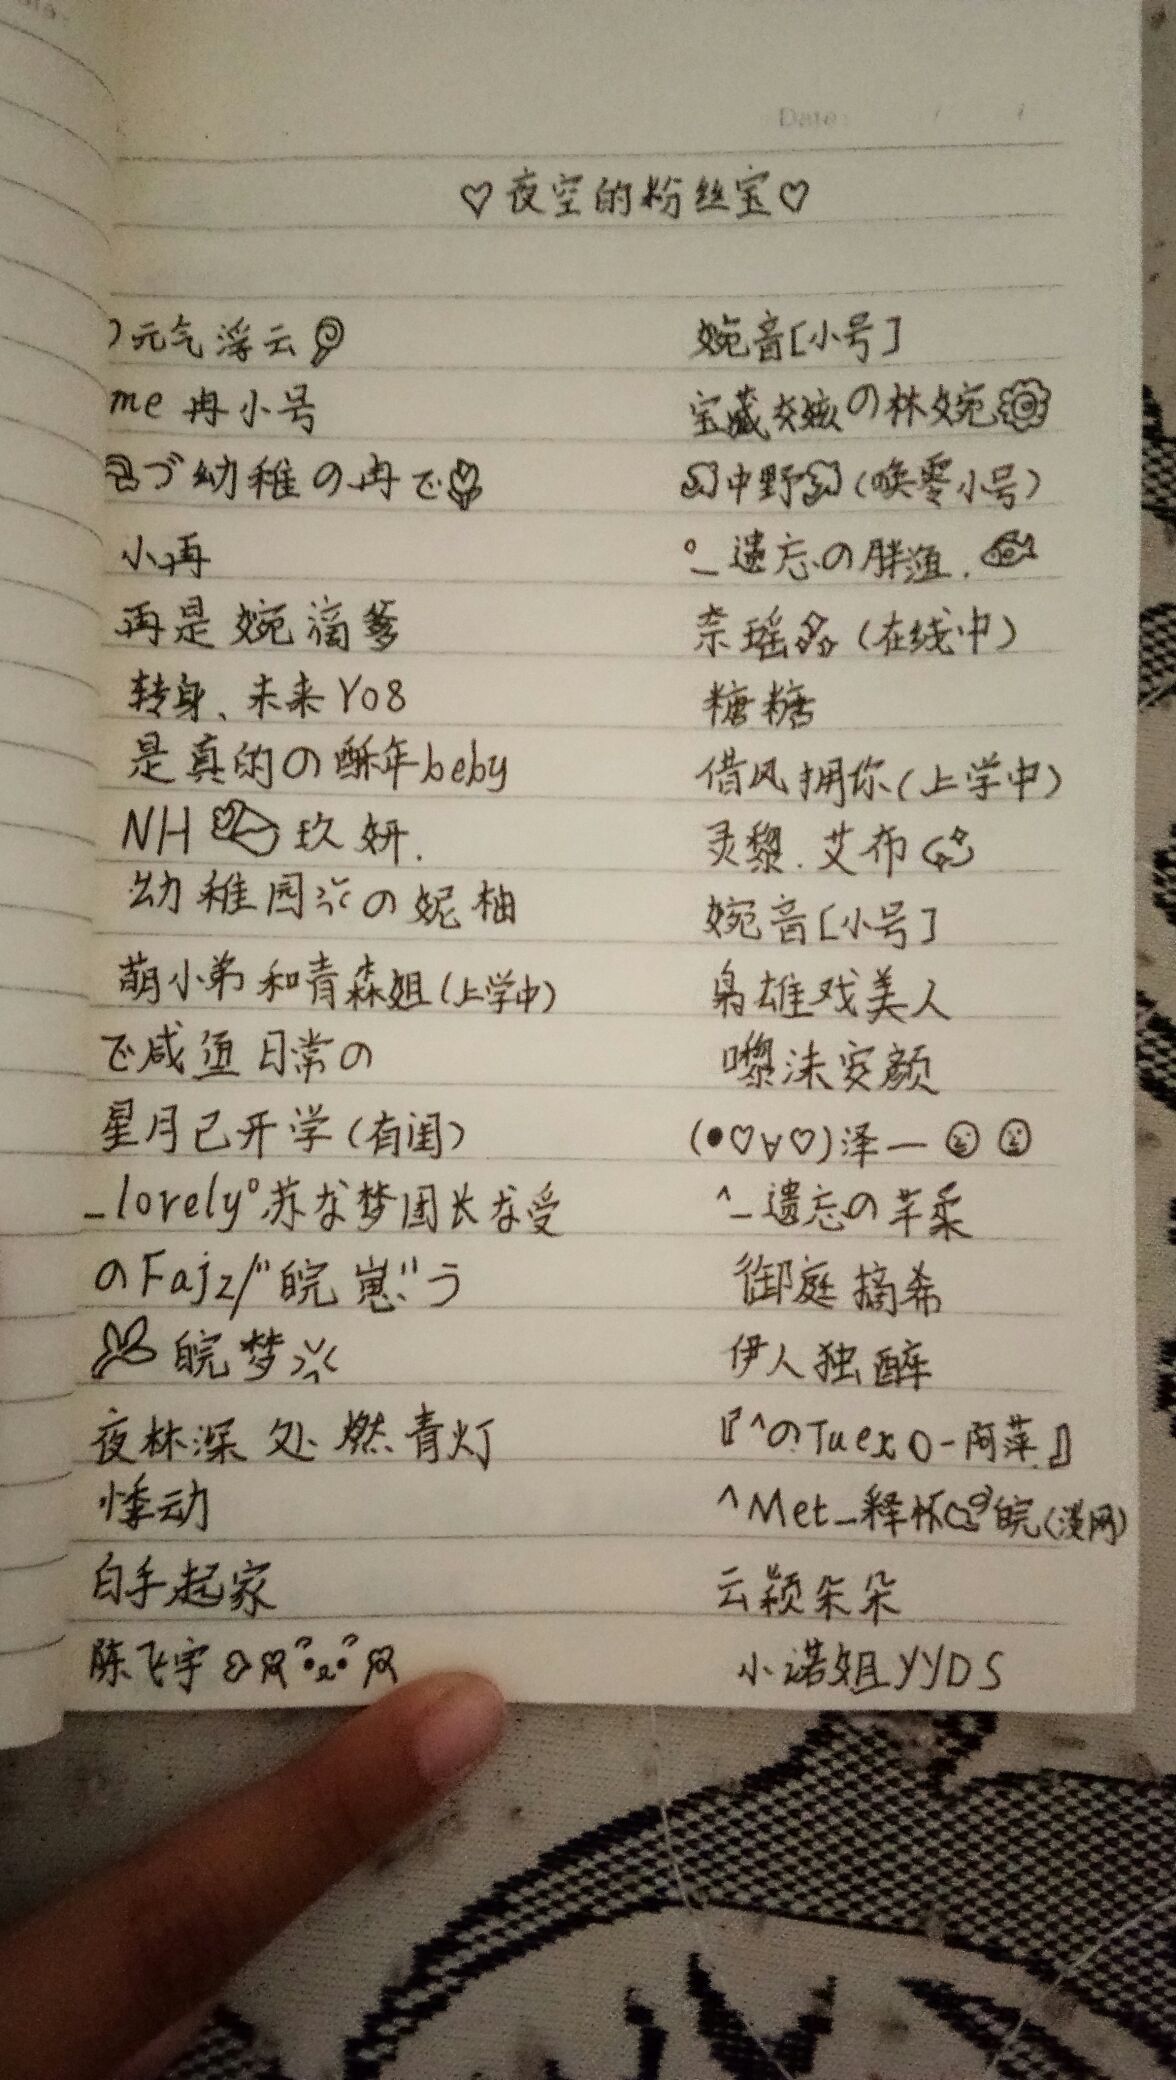 Date:
♡夜空的粉丝宝♡
元气浮云 婉音[小号]
me 冉小号 宝藏女孩の林婉
づ幼稚の冉で 中野(唤零小号)
小再 °_遗忘の胖渔.
再是婉滴爹 奈瑶(在线中)
转身、未来Yo8 糖糖
是真的の酥年beby 借风拥你(上学中)
NH 玖妍. 灵黎.艾布
幼稚园の妮柚 婉音[小号]
萌小弟和青森姐(上学中) 枭雄戏美人
で咸鱼日常の 嚟沫安颜
星月已开学(有闺) (●♡∀♡)泽一
_lovely°苏な梦团长な受 ^_遗忘の芊柔
のFajz/"皖崽"う 御庭摘希
皖梦 伊人独醉
夜林深处燃青灯 『^のTuexo-阿萍.』
悸动 ^Met_释怀皖(漫网)
白手起家 云颖朵朵
陈飞宇 小诺姐YYDS